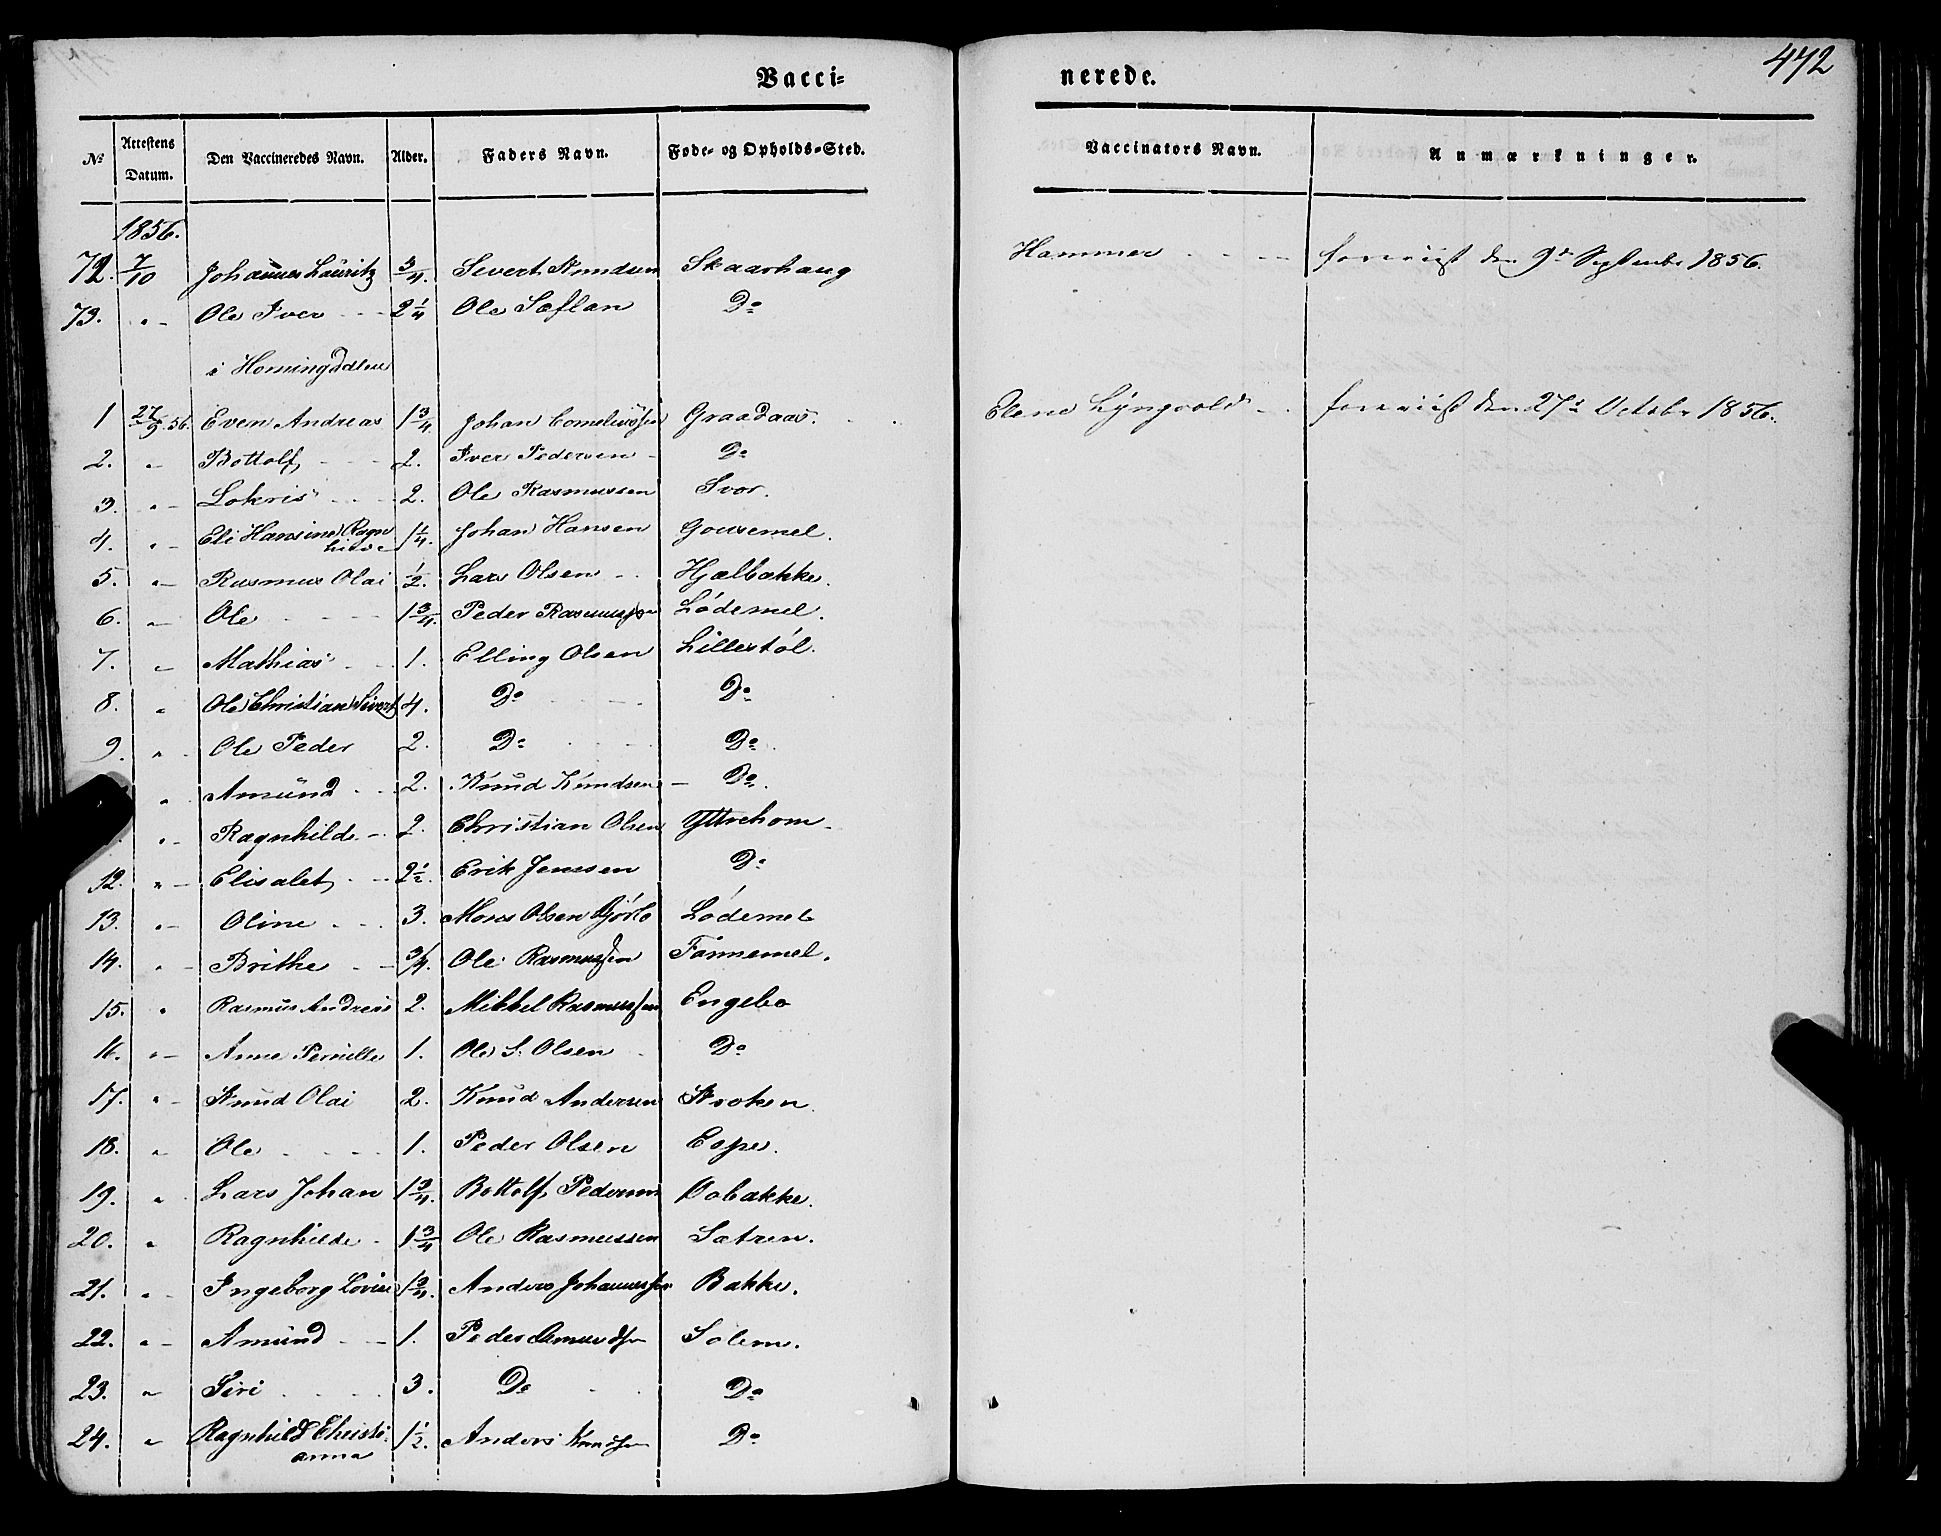 472
Vacci-
nerede.
№ Attestens Datum. Den Vaccineredes Navn. Alder. Faders Navn. Føde- og Opholds-Sted. Vaccinators Navn. Anmærkninger.
1856.
72. 7/10 Johannes Lauritz 3/4. Sivert Knudsen Skaarhaug Hammer den 9de September 1856.
73. " Ole Iver 2 1/4 Ole Sæflan Do
i Horningdalen
1 27/9 56. Even Andreas 1 3/4. Johan Corneliussen Graadaas. Elene Lÿngvold den 27de Octobr 1856.
2. " Bottolf 2. Iver Pedersen Do
3. " Lokris 2. Ole Rasmussen Svor.
4. " Eli Hansine Ragn 1/4. Johan Hansen Gousemel.
hilde
5. " Rasmus Olai 1/2. Lars Olsen Hjælbakke.
6. " Ole 1 3/4. Peder Rasmussen Lødemel.
7. " Mathias 1. Elling Olsen Lillestøl.
8. " Ole Christian Sivert 4. Do Do
9. " Ole Peder 2. Do Do
" Amund 2. Knud Knudsen Do
" Ragnhilde 2. Christian Olsen Yttrehorn
12. " Elisabet 2 1/2. Erik Jenssen Do
13. " Oline 3. Mons Olsen Gjørlo Lødemel
14. " Brithe 3/4. Ole Rasmussen Tannemel.
15. " Rasmus Andreas 2. Mikkel Rasmussen Engebo
16. " Anne Pernille 1. Ole S. Olsen Do
17. " Knud Olai 2. Knud Andersen Kroken
18. " Ole 1. Peder Olsen Espe.
19. " Lars Johan 1 3/4. Bottolf Pedersen Oobakke.
20. " Ragnhilde 1 3/4 Ole Rasmussen Sætren.
21. " Ingeborg Lovise 1 3/4. Anders Johannessen Bakke.
22. " Amund 1. Peder Amundsen Solem.
23. " Siri 3. Do Do
24. " Ragnhild Christi- 1 1/2. Anders Knudsen Do
anna